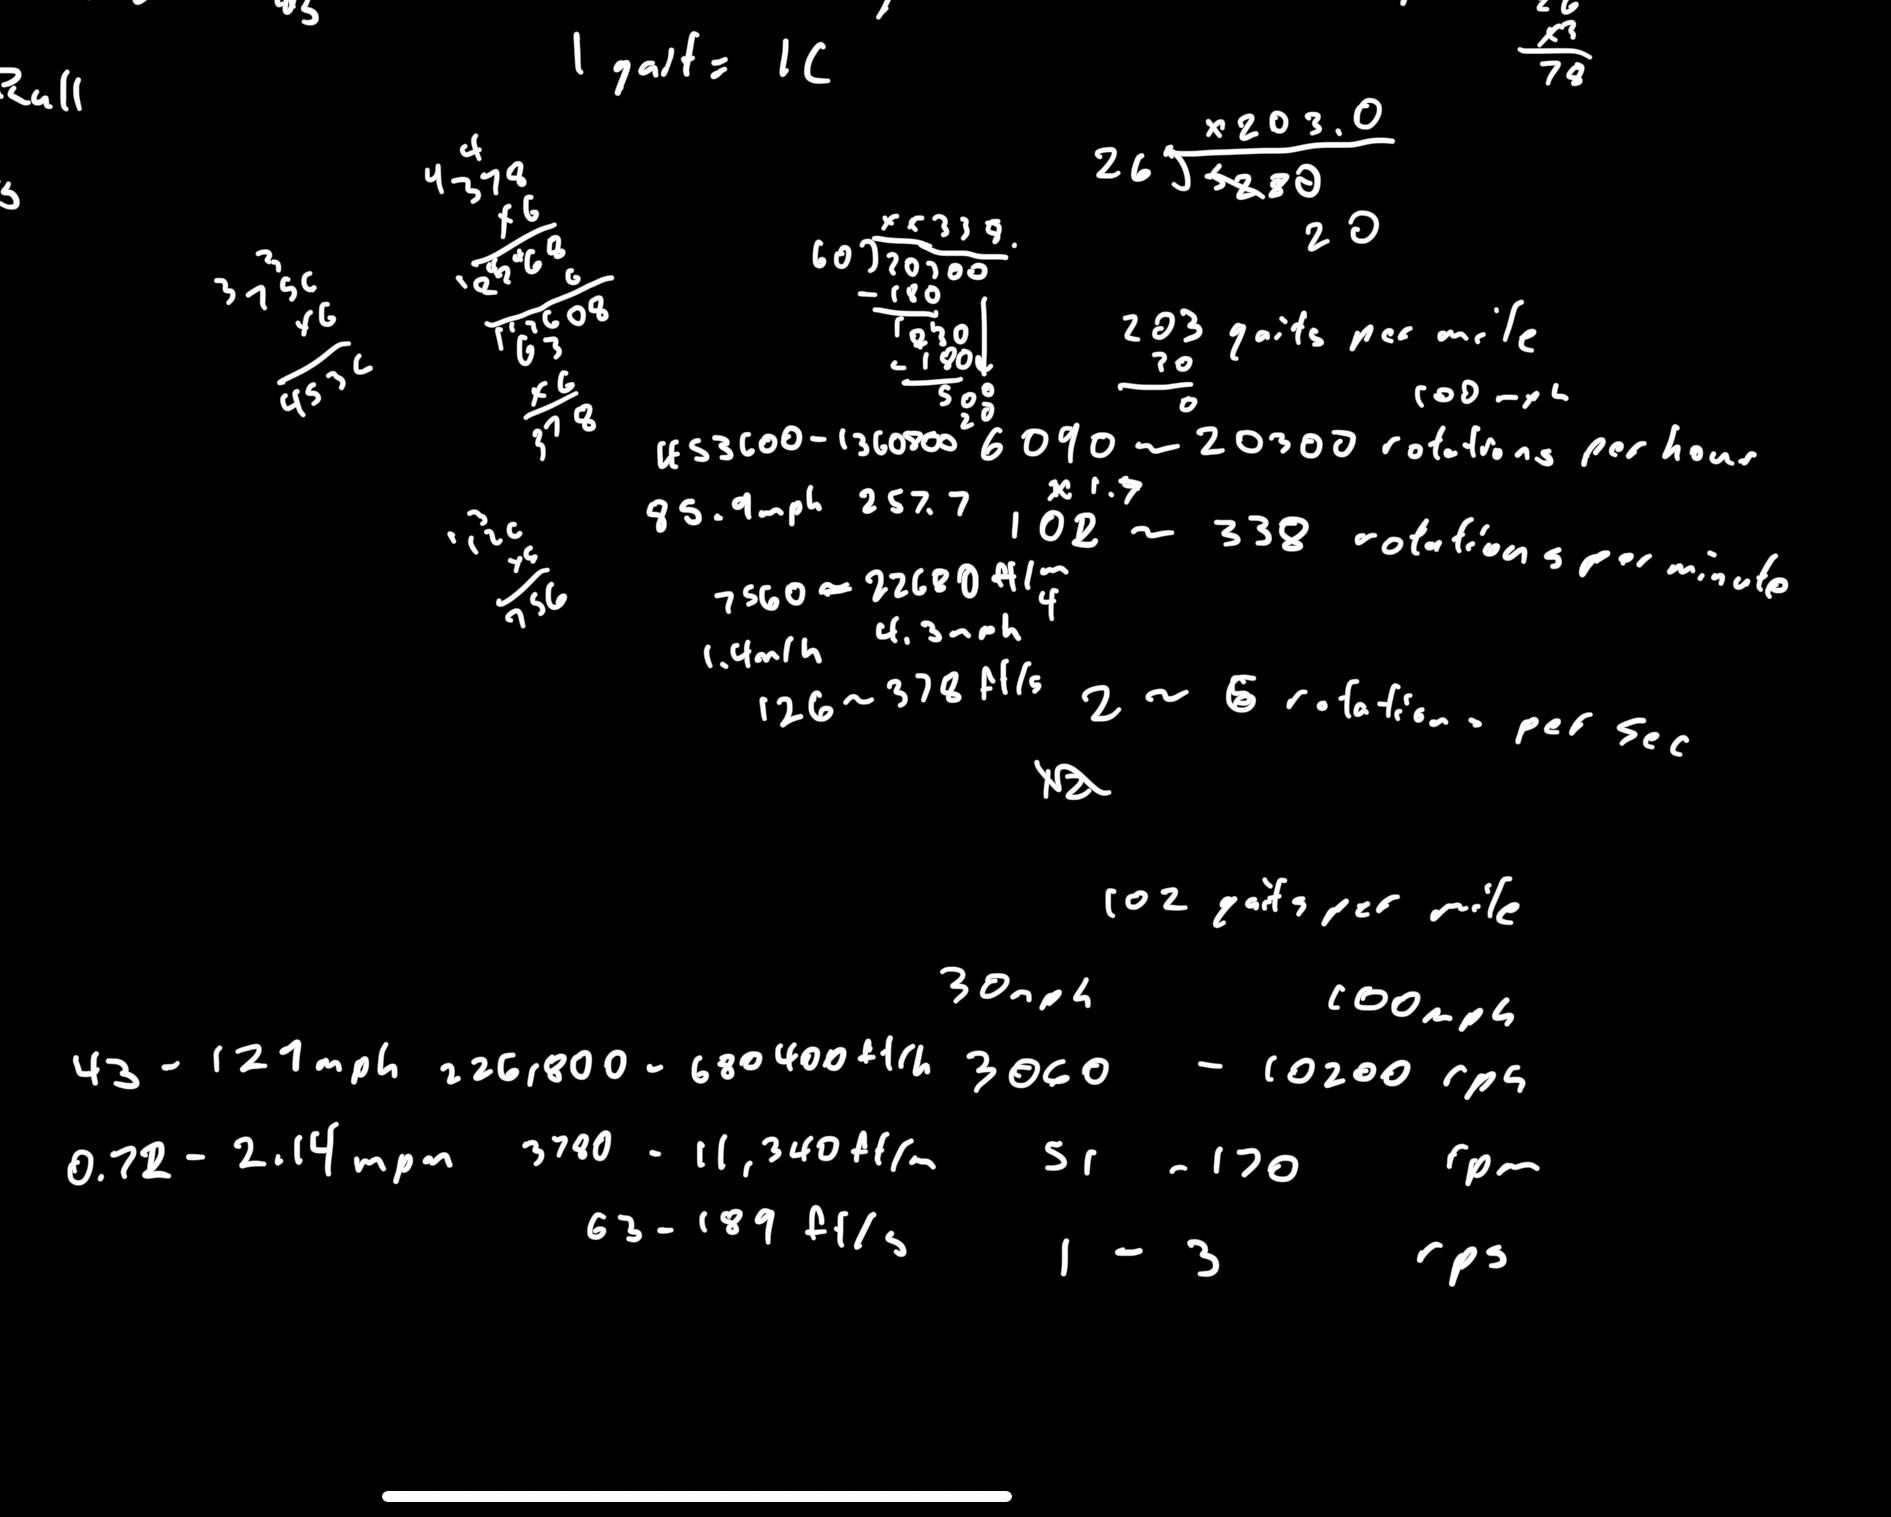 1 gait = 1C
26
x3
78
Rull
x203.0
26 5280
20
4
4378
x6
2268
6
13608
63
x6
378
3
3756
x6
4536
xx338.
60 20300
-180
230
-180
500
20
203 gaits per mile
30
0
100 mph
453600-1360800 6090 ~ 20300 rotations per hour
x 1.7
85.9mph 257.7 102 ~ 338 rotations per minute
3
126
x6
756
7560 ~ 22680 ft/m
4
1.4m/h 4.3mph
126 ~ 378 ft/s 2 ~ 6 rotations per sec
102 gaits per mile
30mph 100mph
43 - 129mph 226,800 - 680400 ft/h 3060 - 10200 rph
0.72 - 2.14 mpm 3780 - 11,340 ft/m 51 - 170 rpm
63 - 189 ft/s 1 - 3 rps